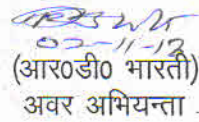 02-11-12
(आर0डी0 भारती)
अवर अभियन्ता